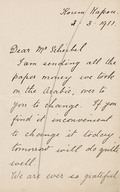 3. 3. 1911.
Dear Mr Schechtel
I am sending all the
paper money we took
in the Arabic, over to
you to change. If you
find it inconvenient
to change it today
tomorrow will do quite
well.
We are ever so grateful